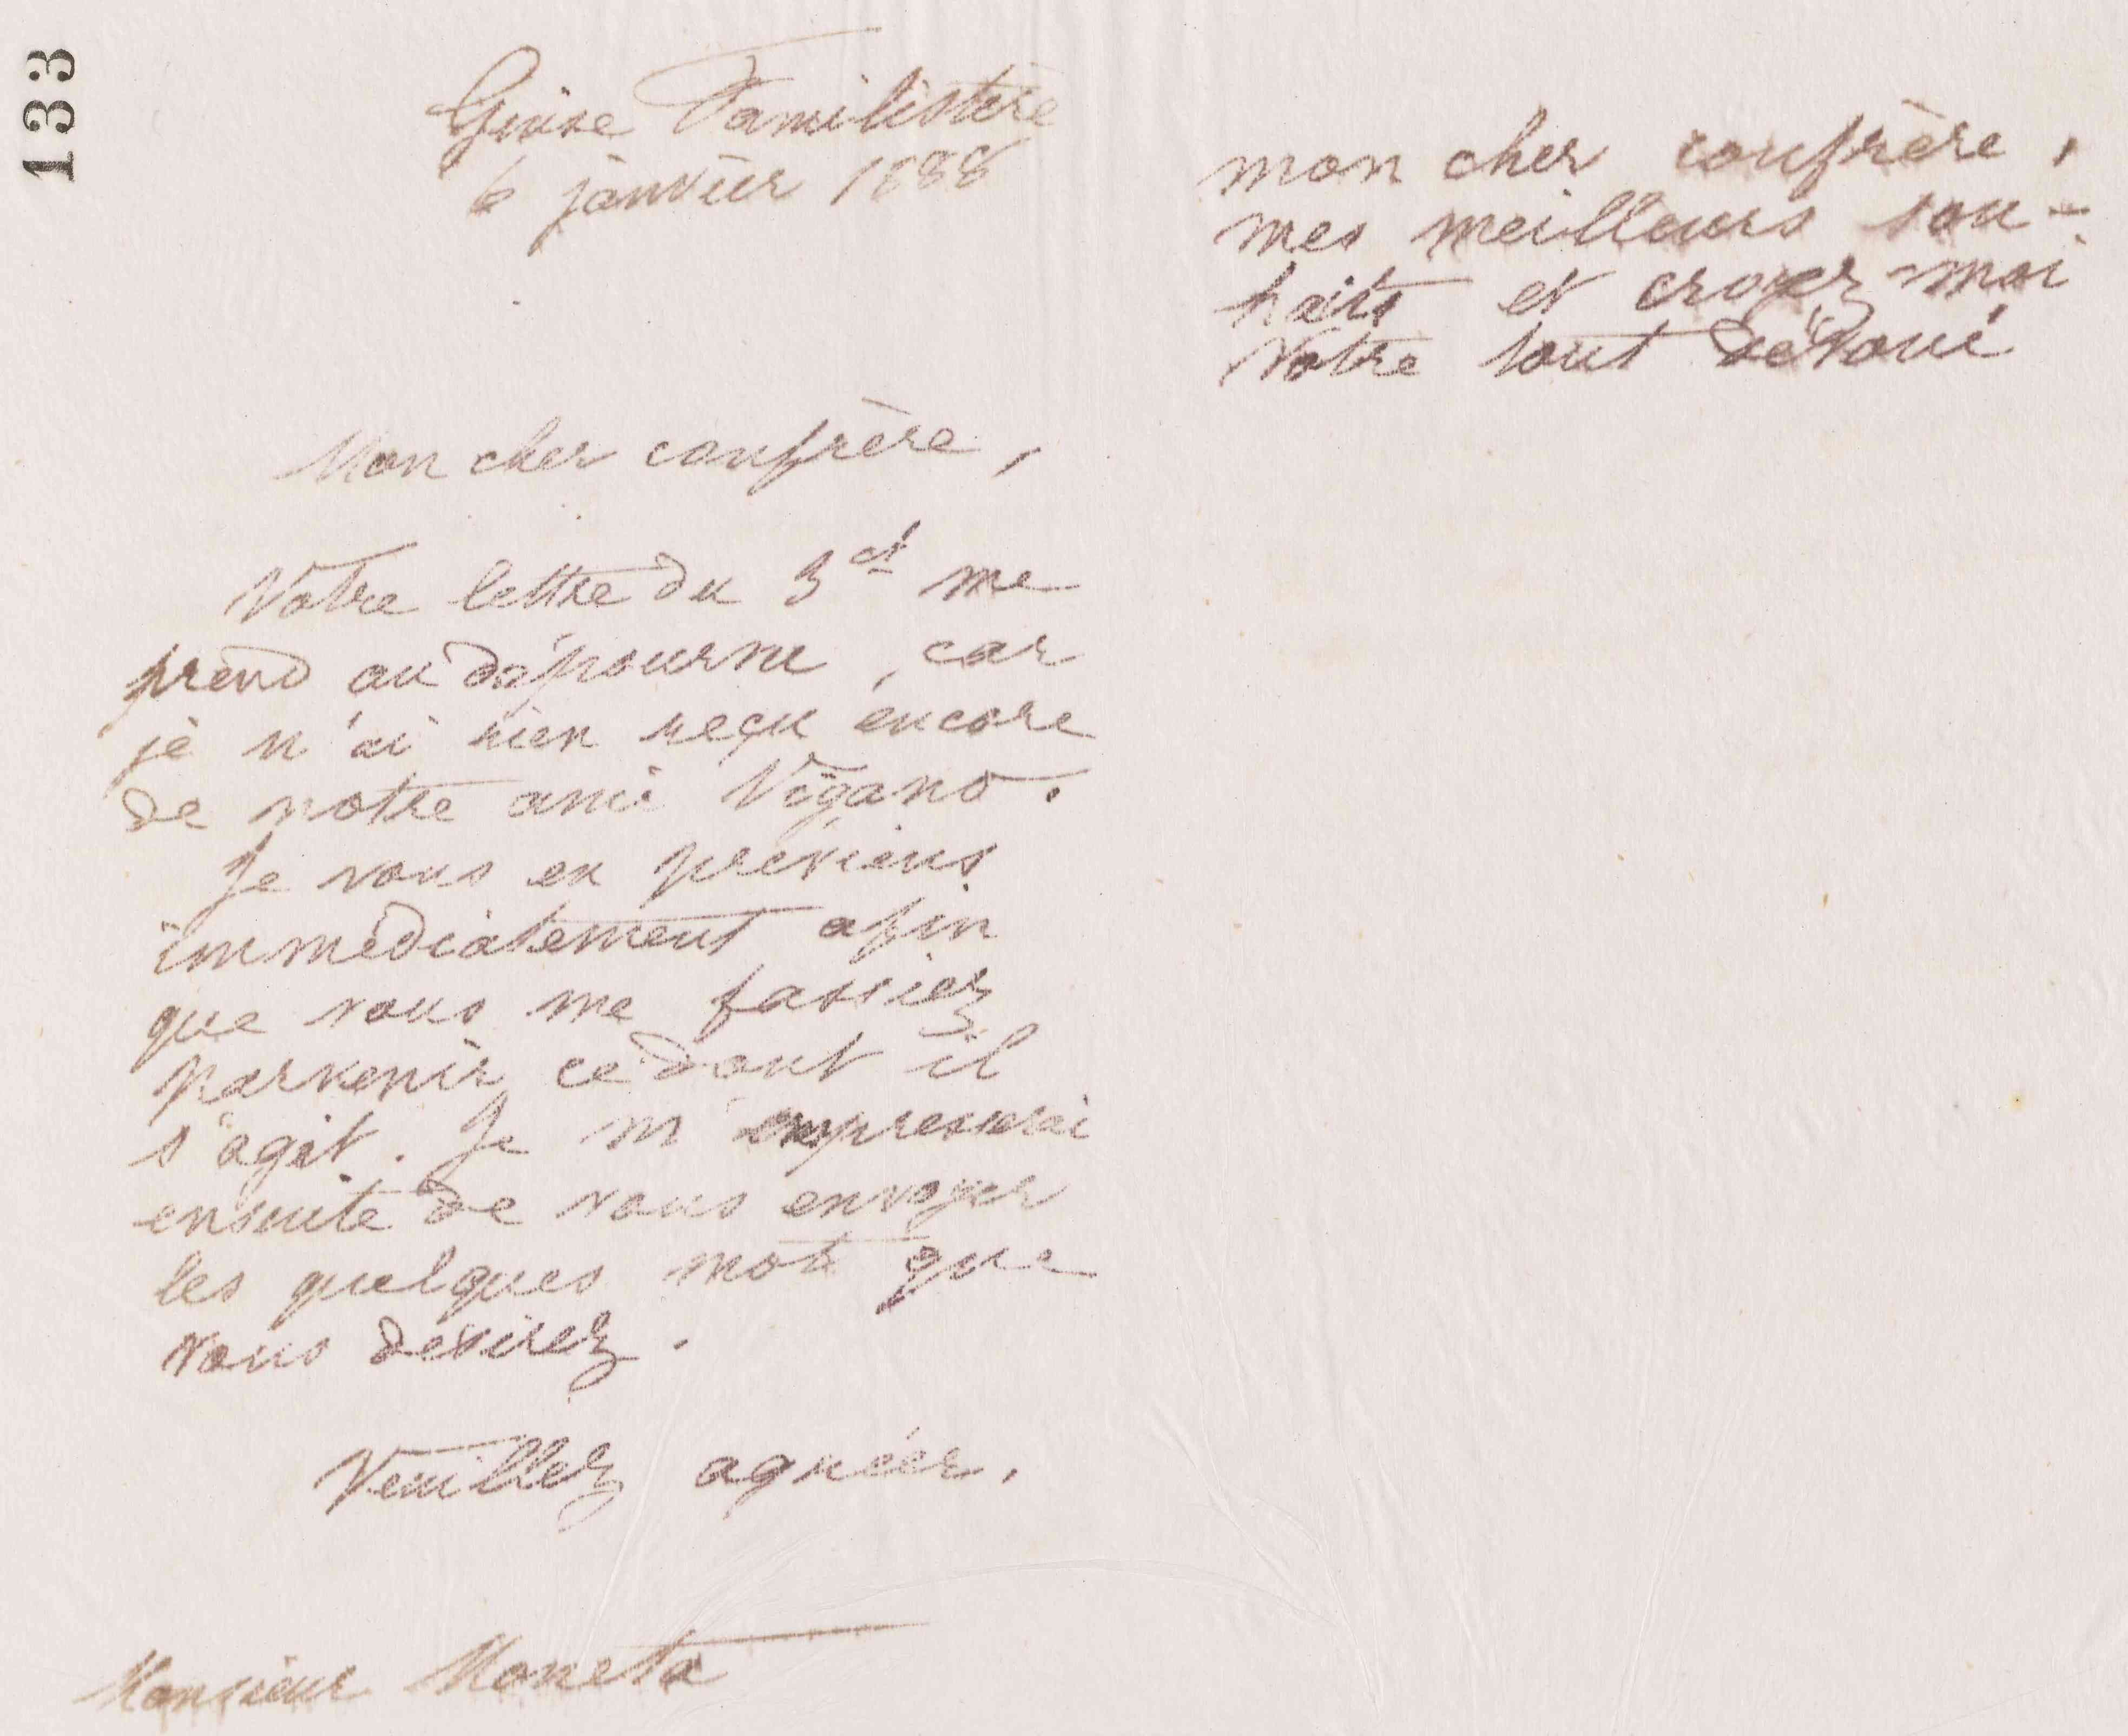 133
Guise Familistère
6 janvier 1888
Mon cher confrère,
Votre lettre du 3 ct me
prend au dépourvu, car
je n'ai rien reçu encore
de notre ami Vigano.
Je vous en préviens
immédiatement afin
que vous me fassiez
parvenir ce dont il
s'agit. Je m'empresserai
ensuite de vous envoyer
les quelques mots que
vous désirez.
Veuillez agréer,
Monsieur Moneta
mon cher confrère,
mes meilleurs sou-
haits et croyez-moi
Votre tout dévoué